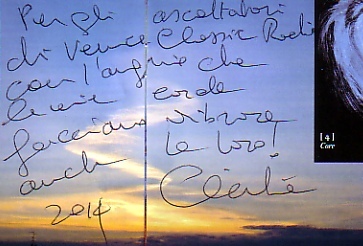 Per gli ascoltatori
di Venice Classic Radio
con l'augurio che
le mie corde
facciano vibrare
anche le loro!
Cécile
2014
[4]